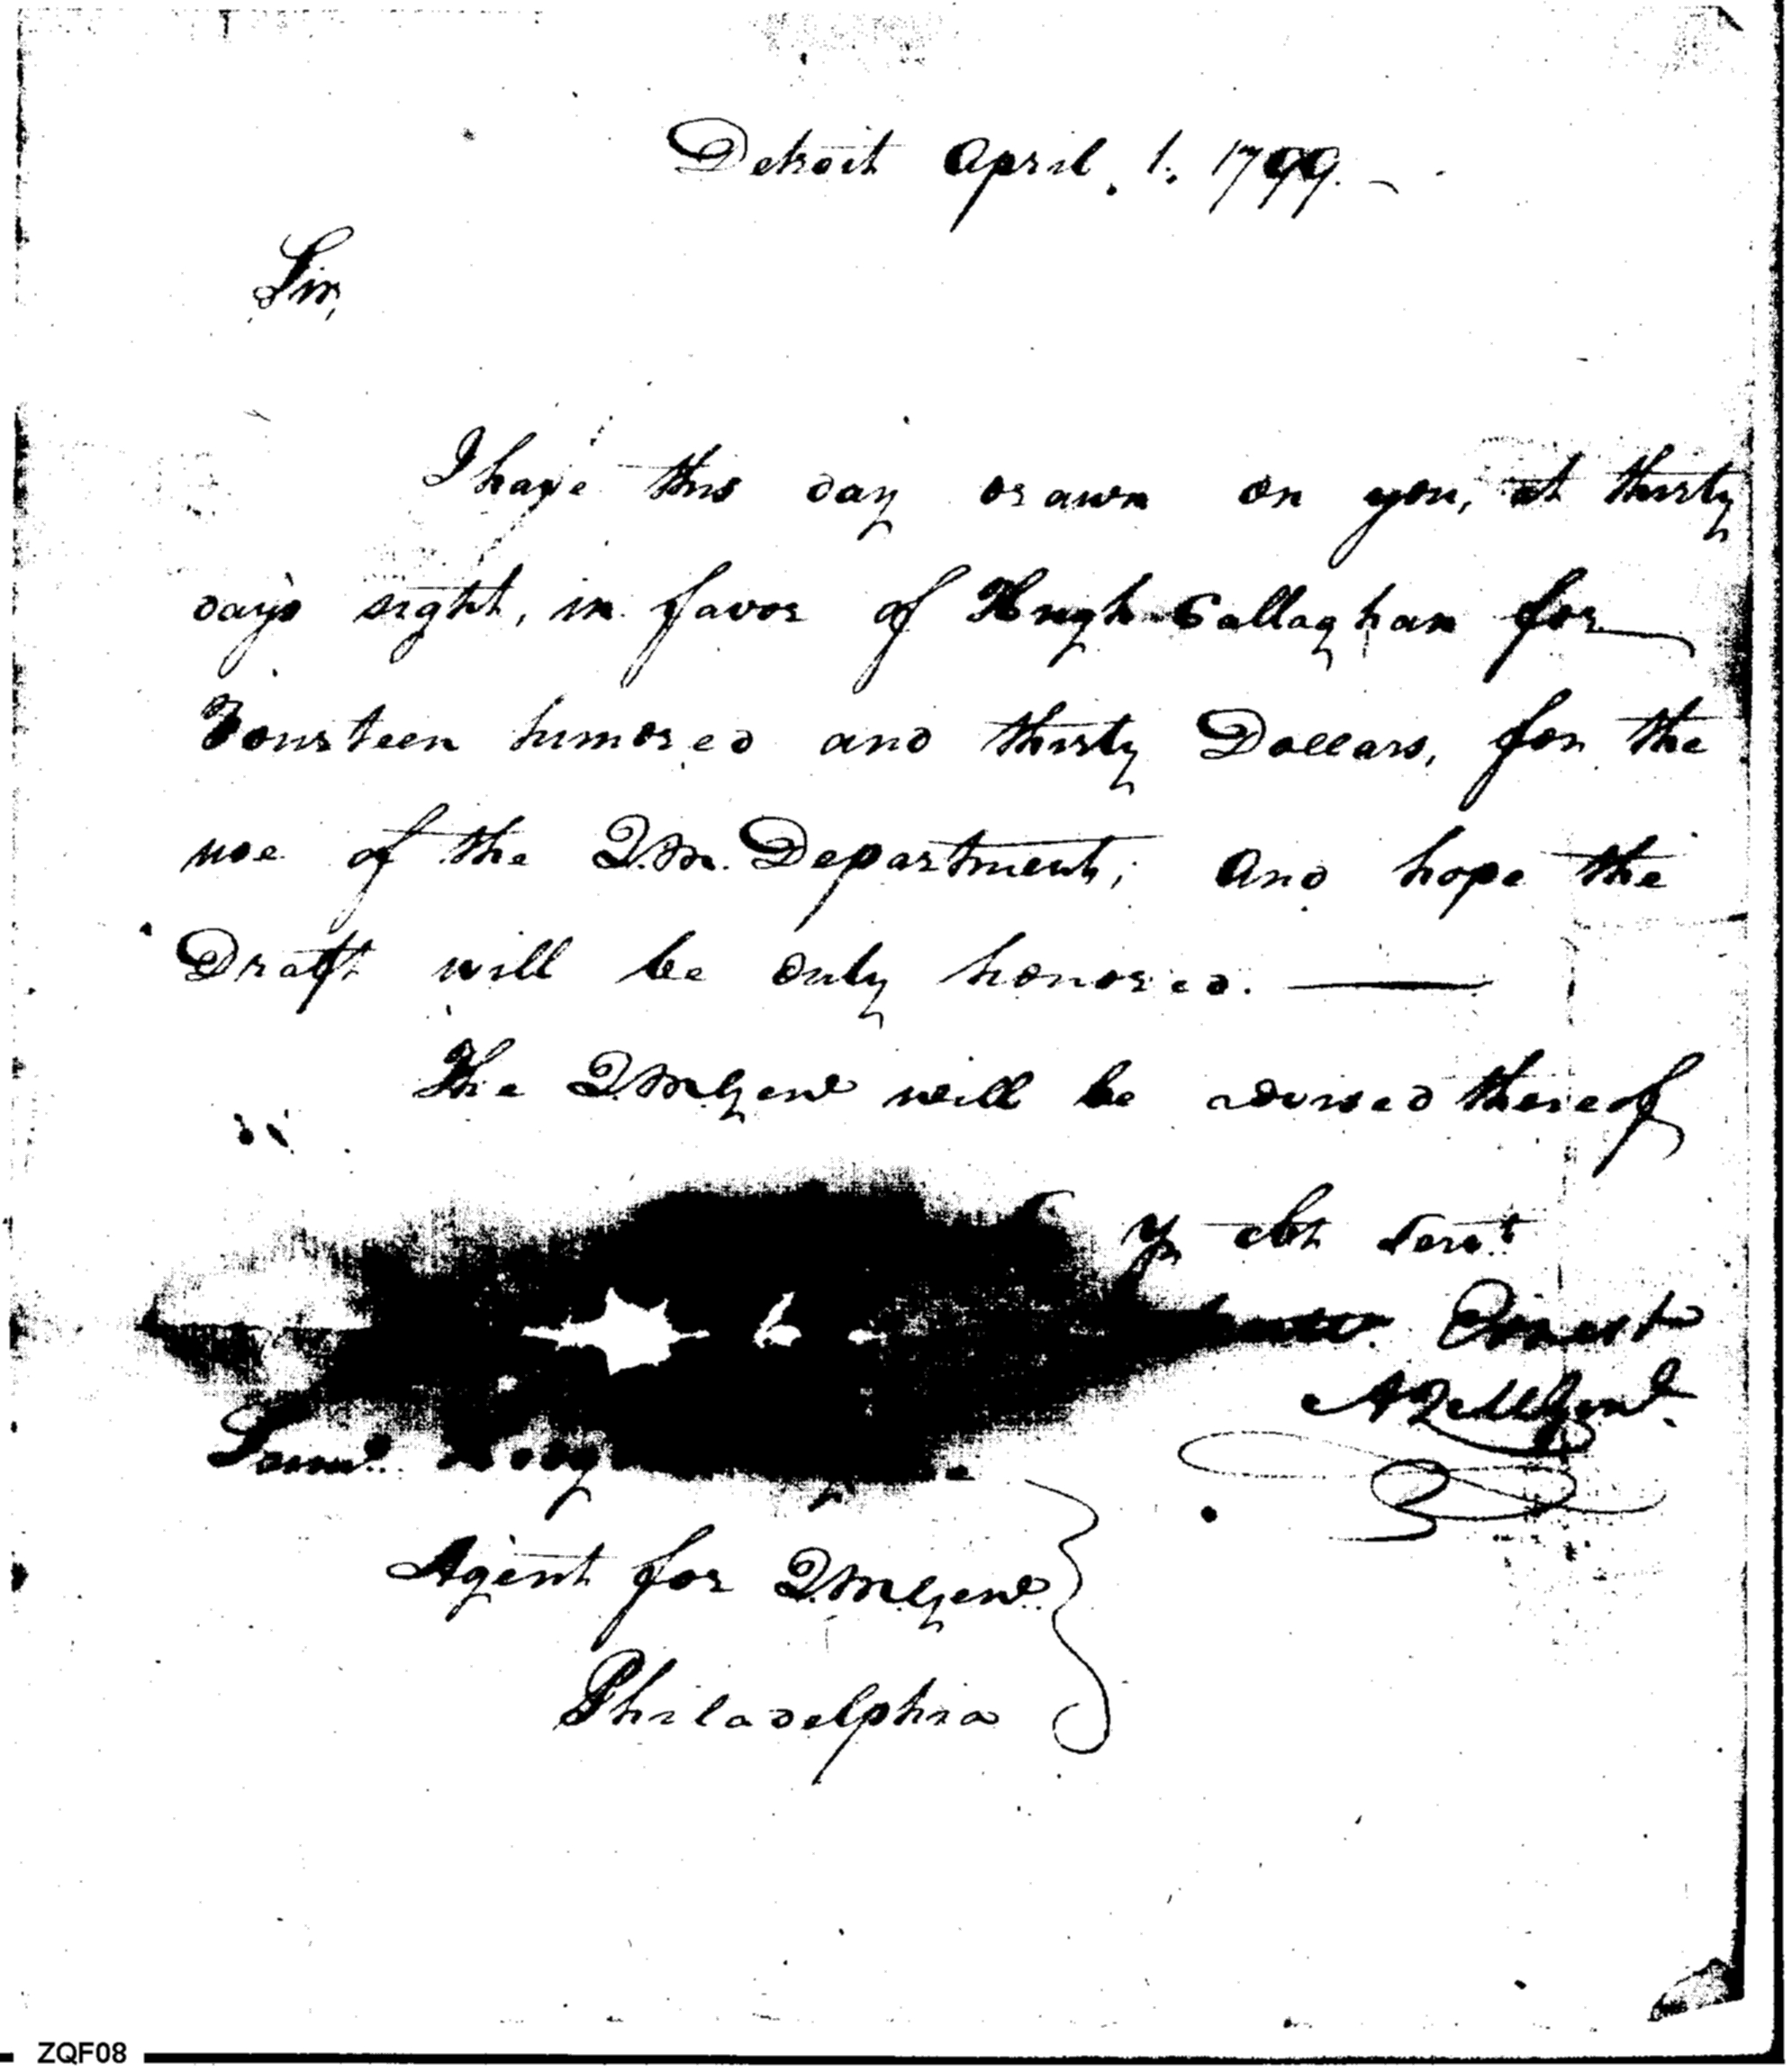 Detroit April. 1. 1799. –
Sir,
I have this day drawn on you, at thirty
days sight, in favor of Hugh Callaghan for
Fourteen hundred and thirty Dollars, for the
use of the Q.M. Department; And hope the
Draft will be duly honored. —
The Q.M. Genl will be advised thereof
Yr obt Servt
Ernest
A Q M Genl.
Saml.
Agent for Q.M. Genl.
Philadelphia
ZQF08